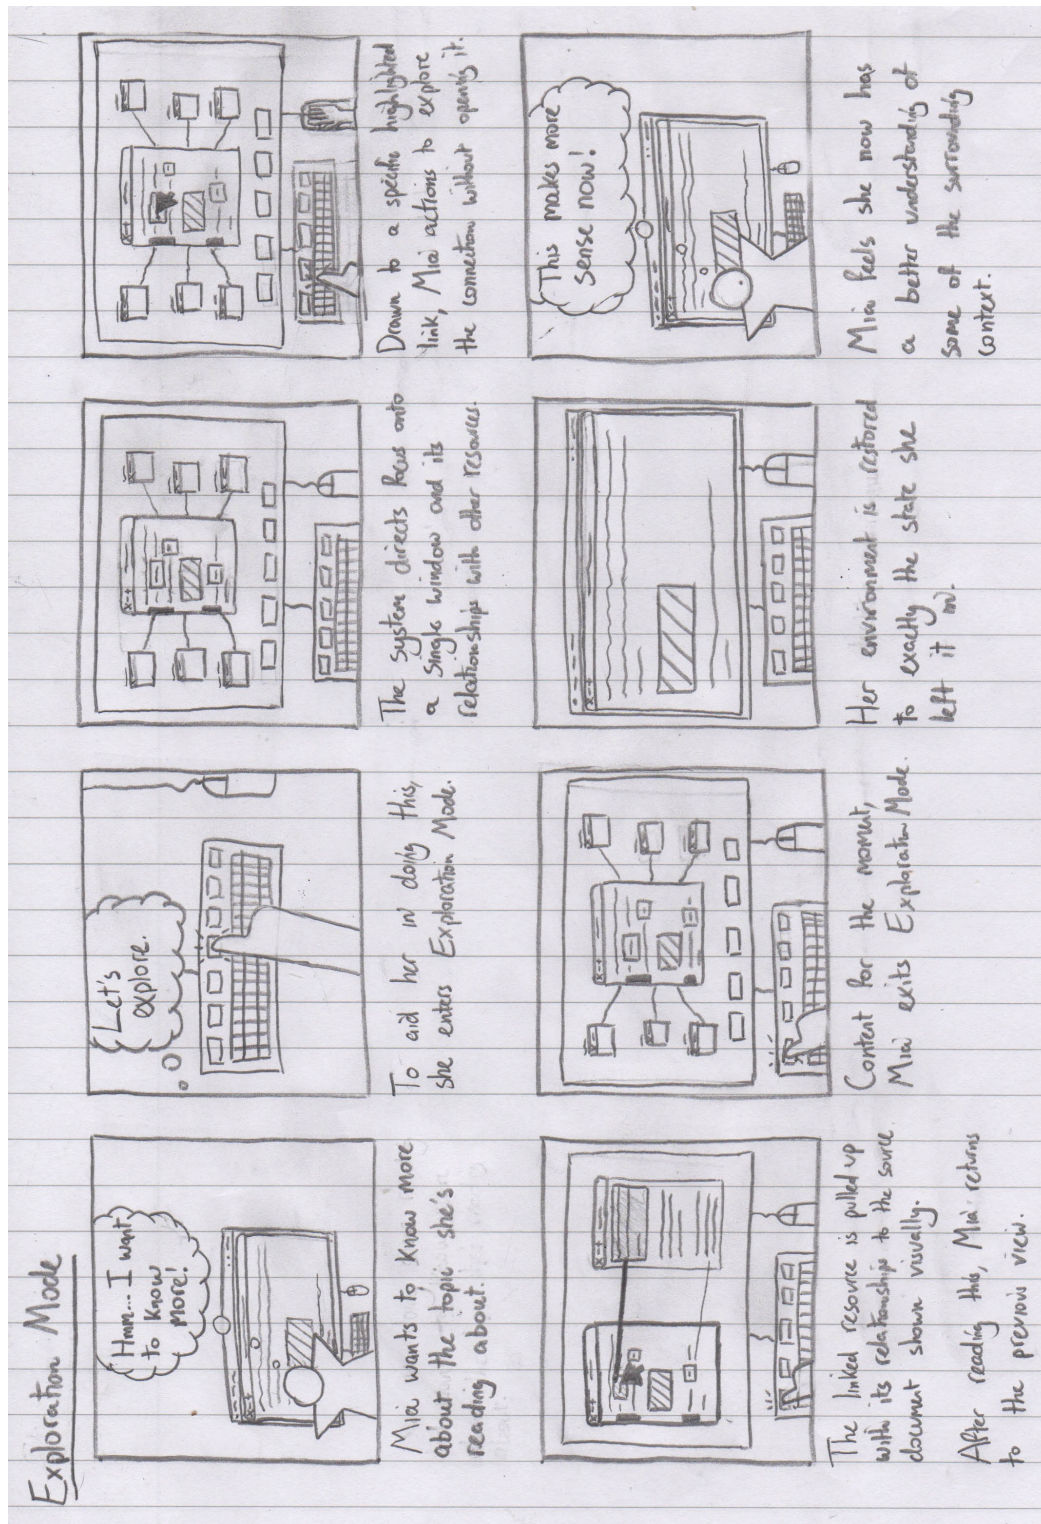 Exploration Mode
Hmm... I want
to know
more!
Mia wants to know more
about the topic she's
reading about.
Let's
explore.
To aid her in doing this,
she enters Exploration Mode.
The system directs focus onto
a single window and its
relationships with other resources.
Drawn to a specific highlighted
link, Mia actions to explore
the connection without opening it.
The linked resource is pulled up
with its relationships to the source
document shown visually.
After reading this, Mia returns
to the previous view.
Content for the moment,
Mia exits Exploration Mode.
Her environment is restored
to exactly the state she
left it in.
This makes more
sense now!
Mia feels she now has
a better understanding of
some of the surrounding
context.